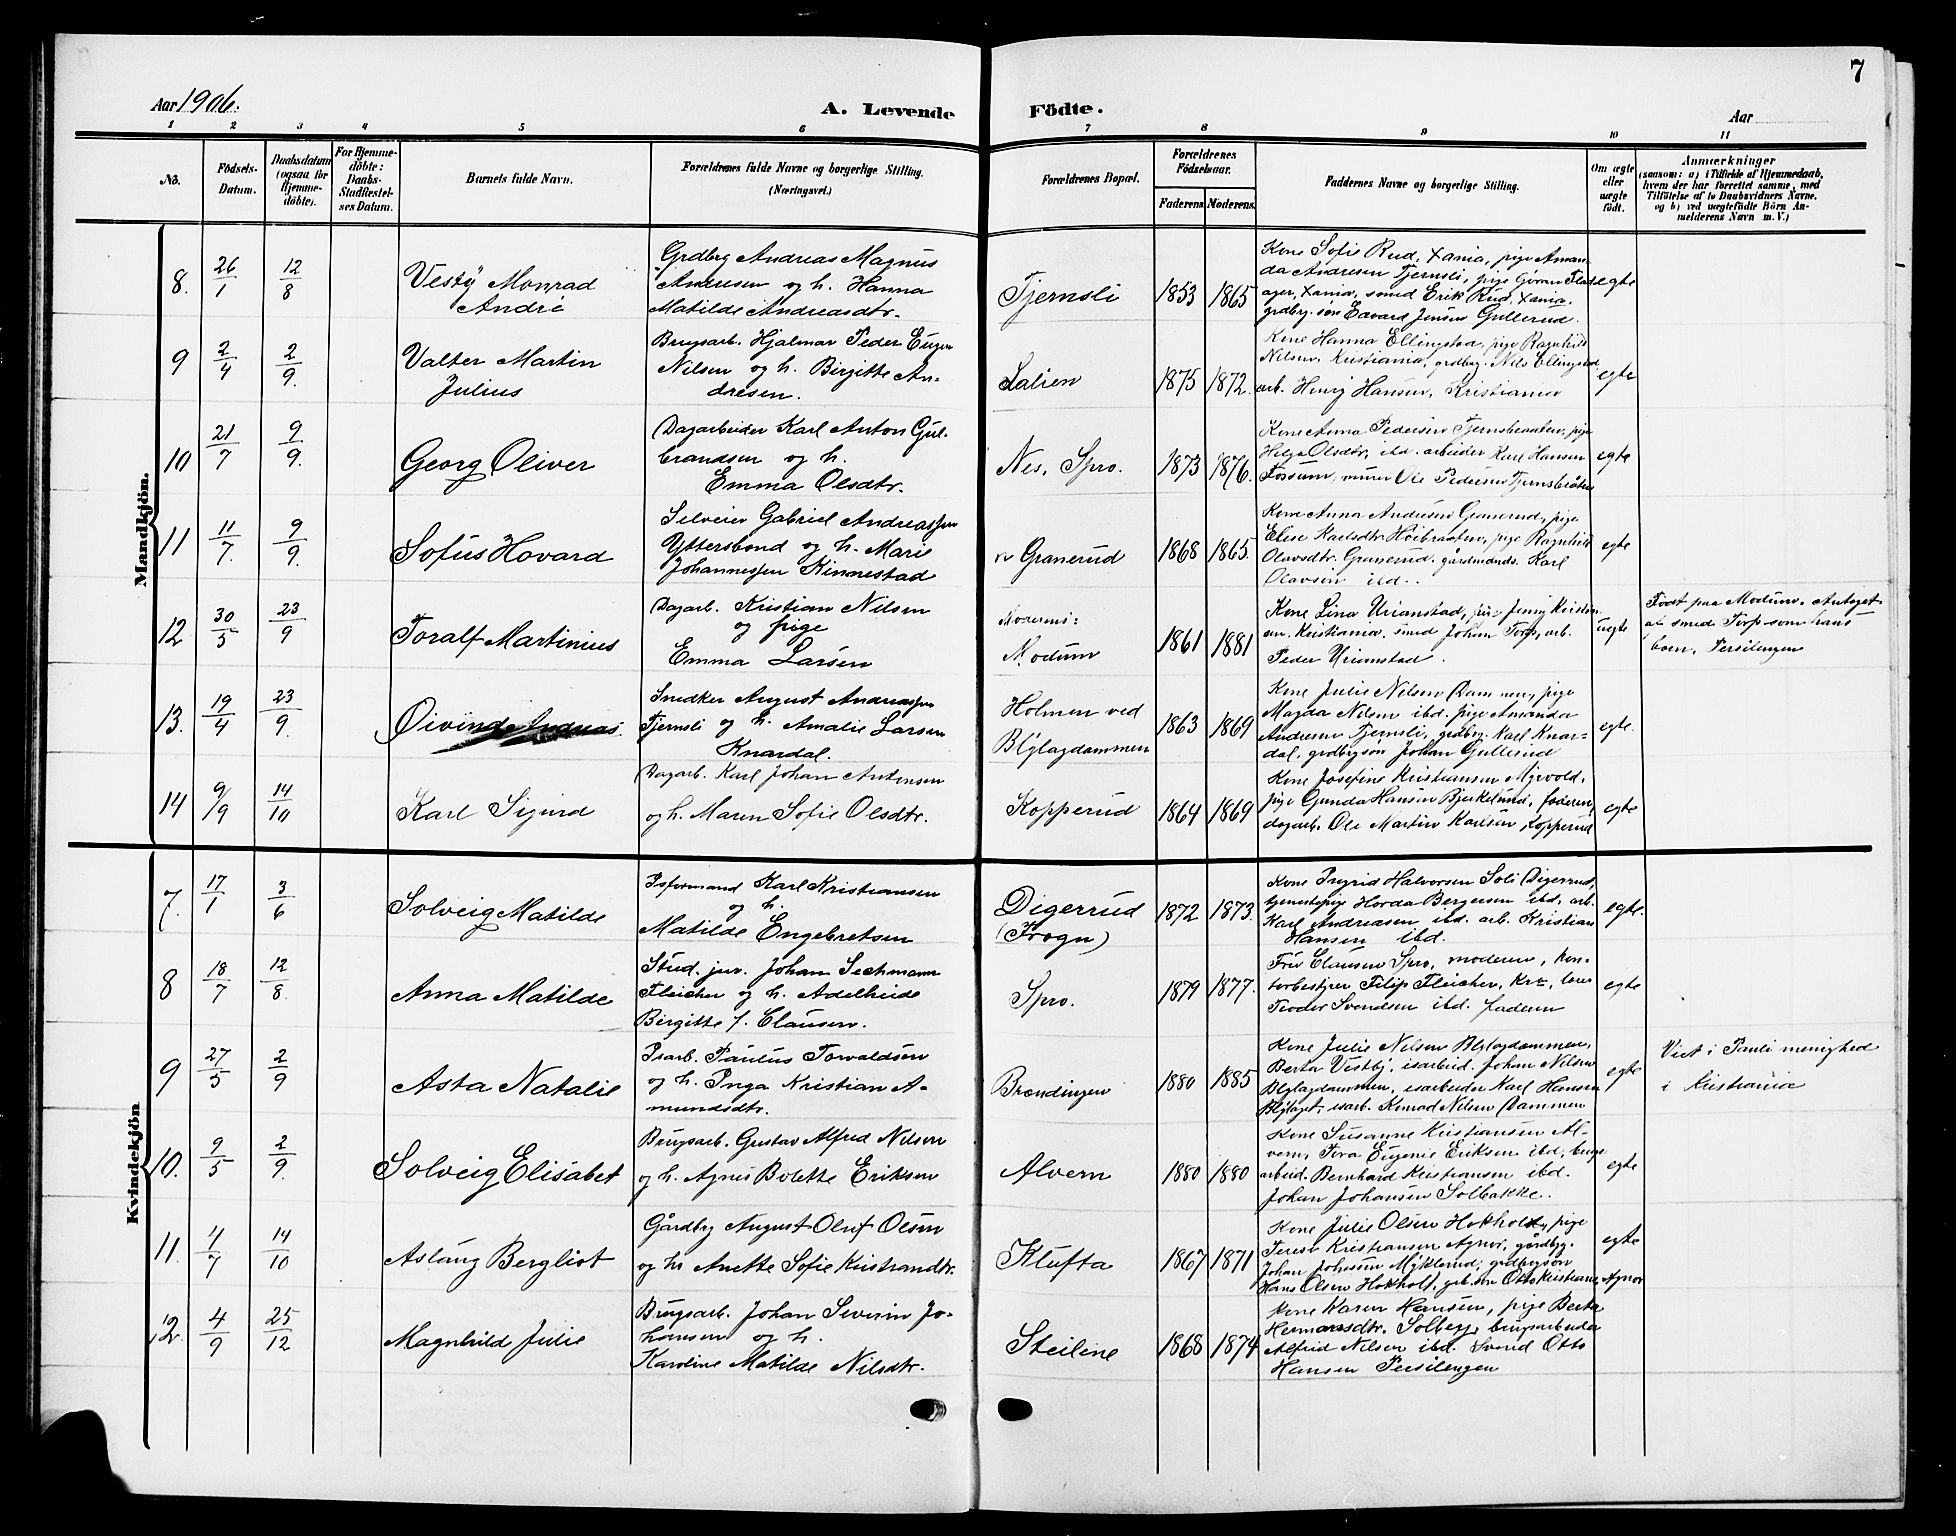 7
Aar 1906.
A. Levende Födte.
Aar
1 2 3 4 5 6 7 8 9 10 11
No.
Födsels-
Datum.
Daabsdatum
(ogsaa för
Hjemme-
döbte).
For Hjemme-
döbte:
Daabs-
Stadfæstel-
ses Datum.
Barnets fulde Navn.
Forældrenes fulde Navne og borgerlige Stilling.
(Næringsvei.)
Forældrenes Bopæl.
Forældrenes
Födselsaar.
Faderens. Moderens.
Faddernes Navne og borgerlige Stilling.
Om ægte
eller
uægte
født.
Anmærkninger
(saasom: a) i Tilfælde af Hjemmedaab,
hvem der har forrettet samme, med
Tilföielse af to Daabsvidners Navne.
og b) ved uægtefödte Börn An-
melderens Navn m. V.)
Mandkjön.
8. 26/1 12/8
Vestÿ Monrad
André
Grdbrg Andreas Magnus
Andresen og h. Hanna
Matilde Andreasdtr.
Tjernsli
1853 1865
Kone Sofie Rud, Xania, pige Aman-
da Andresen Tjernsli, pige Gøran
ager, Xania, smed Erik Rud, Xania.
grdbrg. søn Edvard Jensen Gullerud.
egte
9 2/4 2/9.
Valter Martin
Julius
Brugsarb. Hjalmar Peder Eugen
Nilsen og h. Birgitte An-
dresen.
Salien
1875 1872.
Kone Hanna Ellingstad, pige Ragnhild
Nilsen, Kristiania, grdbrg. Nils Ellingstad
arb. Henrÿ Hansen, Kristiania
egte
10 21/7 9/9.
Georg Oliver
Dagarbeider Karl Anton Gul-
brandsen og h.
Emma Olsdtr.
Nes, Spro.
1873 1876.
Kone Anna Pedersen Tjernsbraaten, pige
Helga Olsdtr. ibd. arbeider Karl Hansen
Fossum, murer Ole Pedersen Tjernsbråten
egte
11 11/7. 9/9.
Sofus Hovard
Selveier Gabriel Andreassen
Yttersbond og h. Marie
Johannessen Kinnestad
n Granerud
1868 1865.
Kone Anna Andresen Granerud, pige
Elise Karlsdtr. Høibraaten, pige Ragnhild
Olavsdtr. Granerud. gårdmands. Karl
Olavsen ibd.
egte
12. 30/5 23/9
Toralf Martinius
Dagarb. Kristian Nilsen
og pige
Emma Larsen
Moderens:
Modum
1861 1881
Kone Lina Urianstad, pige Jenny Kristian-
sen, Kristiania, smed Johan Torp, arb.
Peder Urianstad.
uegte
Født paa Modum. Antaget
af smed Torp som hans
barn, Persilengen
13. 19/4 23/9.
Øivind Andreas.
Snedker August Andreassen
Tjernsli og h. Amalie Larsen
Knardal.
Holmen ved
Blylagdammen
1863 1869
Kone Julie Nilsen Dammen, pige
Magda Nilsen ibd. pige Amanda
Andresen Tjernsli, grdbrg. Karl Knar-
dal. grdbrgsøn Johan Gullerud
egte.
14 9/9 14/10
Karl Sigurd
Dagarb. Karl Johan Antonsen
og h. Maren Sofie Olsdtr.
Kopperud
1864 1869
Kone Josefine Kristiansen Myrvold,
pige Gunda Hansen Bjerkelund, faderen,
dagarb. Ole Martin Karlsen, Kopperud
egte
Kvindekjön
7. 17/1 3/6
Solveig Matilde
Isformand Karl Kristiansen
og h.
Matilde Engebretsen
Digerrud
(Frogn)
1872 1873.
Kone Ingrid Halvorsen Soli Digerrud,
tjenestepige Horda Bergersen ibd. arb.
Karl Andreasen ibd. arb. Kristian
Hansen ibd.
egte.
8 18/7 12/8.
Anna Matilde
Stud. jur. Johan Sechmann
Fleicher og h. Adelheide
Birgitte f. Clausen.
Spro.
1879 1877.
Frø Clausen Spro, moderen, kon-
torbestyrer Filip Fleicher, Kra,
Teodor Svendsen ibd. faderen
egte
9 27/5 2/9
Asta Natalie
Isarb. Paulus Torvaldsen
og h. Inga Kristian A-
mundsdtr.
Brændingen
1880 1885
Kone Julie Nilsen Blylagdammen,
Berta Vestby, isarbeid. Johan Nilsen
Blylagdammen, isarbeider Karl Hansen
Blylaget, isarb. Konrad Nilsen Dammen
egte
Viet i Pauli menighed
i Kristiania
10. 9/5 2/9.
Solveig Elisabet
Brugsarb. Gustav Alfred Nilsen
og h. Agnes Bolette Eriksen
Alvern
1880 1880
Kone Susanne Kristiansen Al-
vern, Tora Eugenie Eriksen ibd, brugs
arbeid. Bernhard Kristiansen ibd.
Johan Johansen Solbakke.
egte
11. 4/7 14/10
Aslaug Bergliot
Gårdbrg August Oluf Olsen
og h. Anette Sofie Kristiandtr.
Klufta
1867 1871
Kone Julie Olsen Hokholt, pige
Terese Kristiansen Agnor, gårdbrg.
Johan Johnsen Myklerud, grdbrgsøn
Hans Olsen Hokholt, grb. søn Otto Kristiansen Agnor
egte
12. 4/9 25/12
Magnhild Julie
Brugsarb. Johan Severin Jo-
hansen og h.
Karoline Matilde Nilsdtr.
Steilene
1868 1874
Kone Karen Hansen, pige Berta
Hermansdtr. Solberg, brugsarbeider
Alfred Nilsen ibd. Svend Otto
Hansen Persilengen